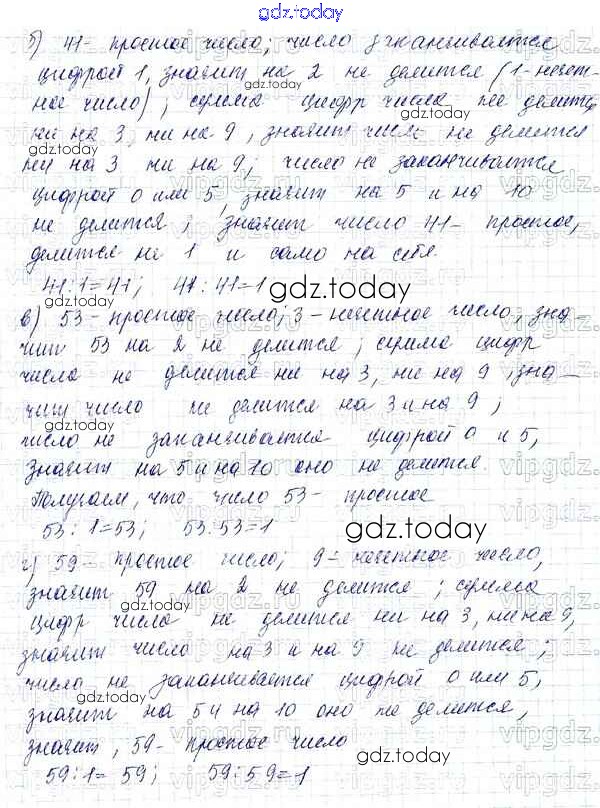 gdz.today
б) 41 - простое число; число заканчивается
цифрой 1, значит на 2 не делится (1 - нечет-
ное число); сумма цифр числа не делится
ни на 3, ни на 9, значит число не делится
ни на 3 ни на 9; число не заканчивается
цифрой 0 или 5, значит на 5 и на 10
не делится; значит число 41 - простое,
делится на 1 и само на себя.
41:1=41; 41:41=1
gdz.today
в) 53 - простое число; 3 - нечетное число, зна-
чит 53 на 2 не делится; сумма цифр
числа не делится ни на 3, ни на 9, зна-
чит число не делится на 3 и на 9;
число не заканчивается цифрой 0 и 5,
значит на 5 и на 10 оно не делится.
Получаем, что число 53 - простое
53:1=53; 53:53=1
gdz.today
г) 59 - простое число; 9 - нечетное число,
значит 59 на 2 не делится; сумма
цифр числа не делится ни на 3, ни на 9,
значит число на 3 и на 9 не делится;
число не заканчивается цифрой 0 или 5,
значит на 5 и на 10 оно не делится,
значит, 59 - простое число
59:1=59; 59:59=1
gdz.today